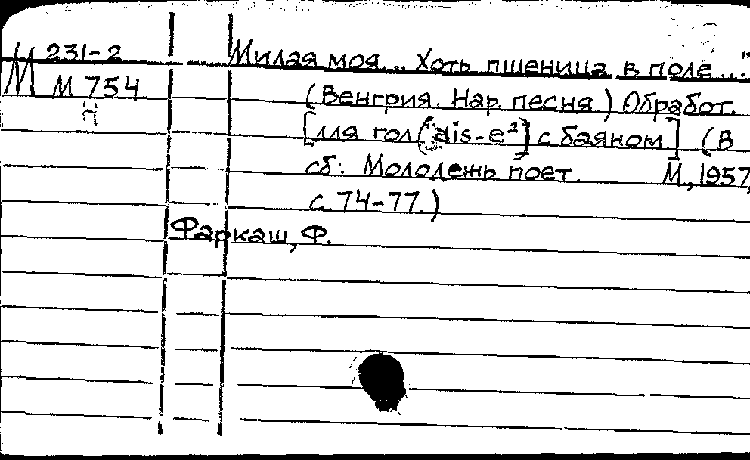 М 231-2
М 754
Н
Милая моя... Хоть пшеница в поле..."
(Венгрия. Нар. песня.) Обработ.
[для гол. (dis-e²) с баяном] (В
сб: Молодежь поет. М., 1957,
с. 74-77.)
Фаркаш, Ф.